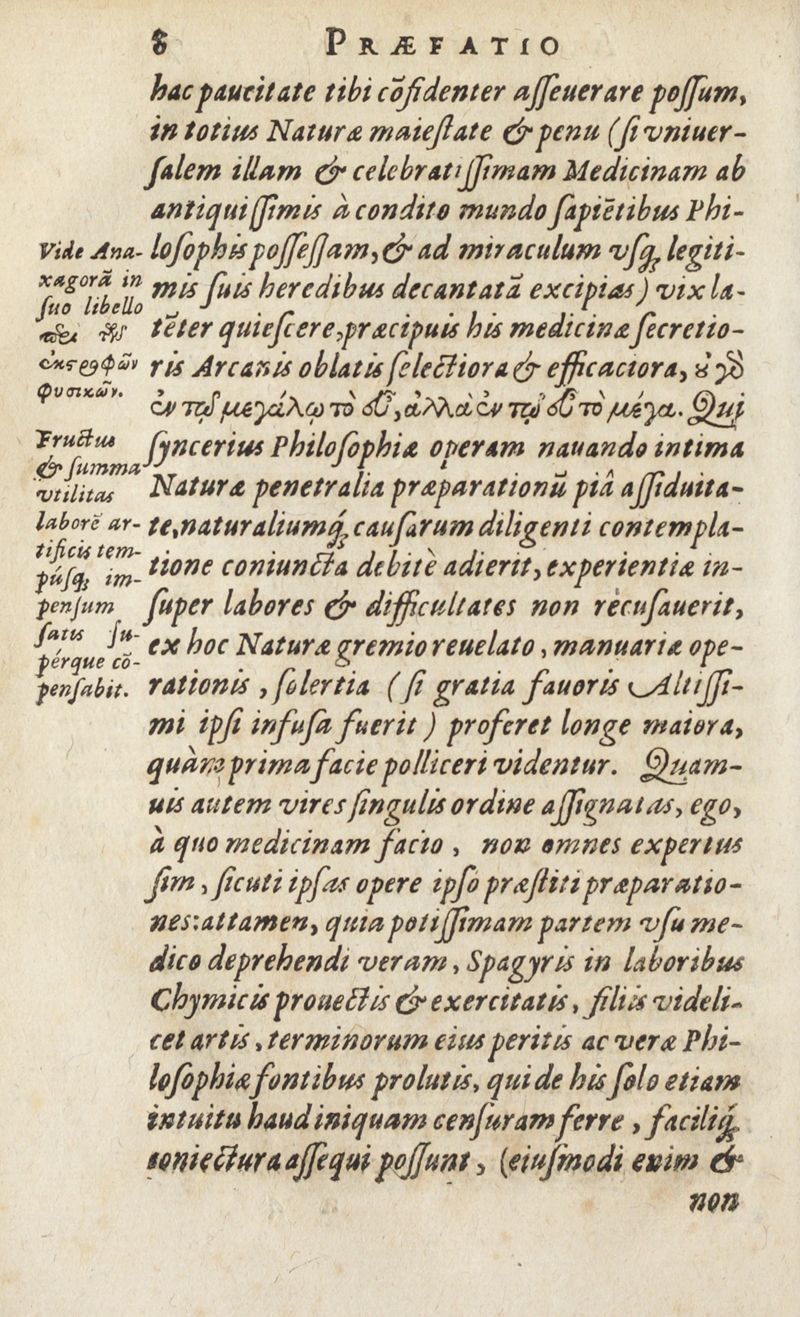 8 PRÆFATIO
hac paucitate tibi cõfidenter aſſeuerare poſſum,
in totius Naturæ maieſtate & penu (ſi vniuer-
ſalem illam & celebratiſſimam Medicinam ab
antiquiſſimis à condito mundo ſapiẽtibus Phi-
loſophis poſſeſſam, & ad miraculum vſq; legiti-
mis ſuis heredibus decantatã excipias) vix la-
tẽter quieſcere, præcipuis his medicinæ ſecretio-
ris Arcanis oblatis ſelectiora & efficaciora, ȣ γὸ
ἐν τῷ μεγάλῳ τὸ εὖ, ἀλλὰ ἐν τῷ εὖ τὸ μέγα. Qui
ſyncerius Philoſophiæ operam nauando intima
Naturæ penetralia præparationũ piâ aſſiduita-
te, naturaliumq́; cauſarum diligenti contempla-
tione coniuncta debitè adierit, experientiæ in-
ſuper labores & difficultates non recuſauerit,
ex hoc Naturæ gremio reuelato, manuariæ ope-
rationis, ſolertia (ſi gratia fauoris Altiſſi-
mi ipſi infuſa fuerit) proferet longe maiora,
quàm prima facie polliceri videntur. Quam-
uis autem vires ſingulis ordine aſſignatas, ego,
à quo medicinam facio, non omnes expertus
ſim, ſicuti ipſas opere ipſo præſtiti præparatio-
nes: attamen, quia potiſſimam partem vſu me-
dico deprehendi veram, Spagyris in laboribus
Chymicis prouectis & exercitatis, filiis videli-
cet artis, terminorum eius peritis ac veræ Phi-
loſophiæ fontibus prolutis, qui de his ſolo etiam
intuitu haud iniquam cenſuram ferre, faciliq́;
coniectura aſſequi poſſunt, (eiuſmodi enim &
non
Vide Ana-
xagorã in
ſuo libello
περὶ τῆς
ἐκστροφῶν
φυσικῶν.
Fructus
& ſumma
vtilitas
laborẽ ar-
tificis tem-
púſq; im-
penſum
ſatis ſu-
pérque cõ-
penſabit.